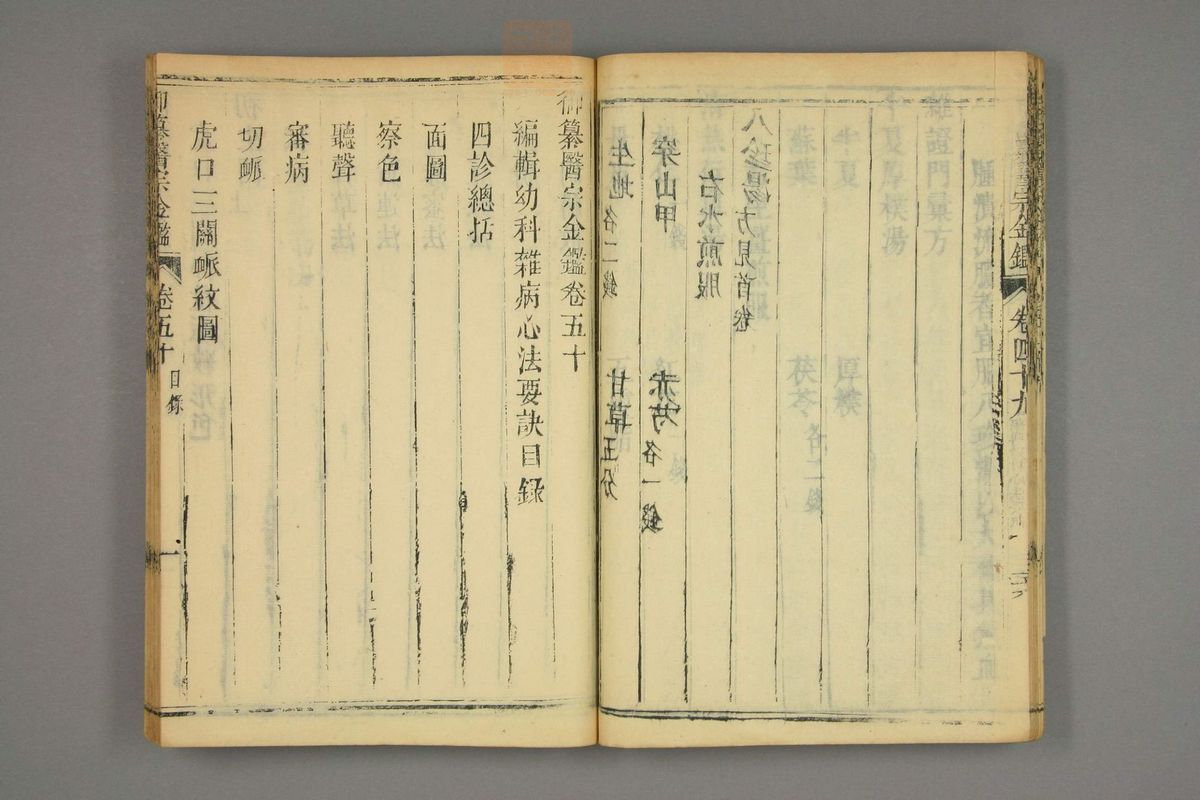 卷四十九
八珍湯方見首卷
右水煎服
穿山甲 赤芍各一錢
生地各二錢 甘草五分
御纂醫宗金鑑卷五十
編輯幼科雜病心法要訣目錄
四診總括
面圖
察色
聽聲
審病
切衇
虎口三關衇紋圖
御纂醫宗金鑑 卷五十 目錄 一